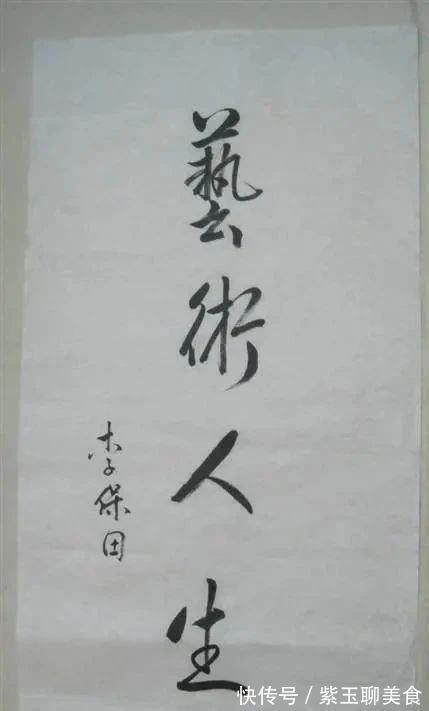 藝術人生
李保田
快传号/紫玉聊美食